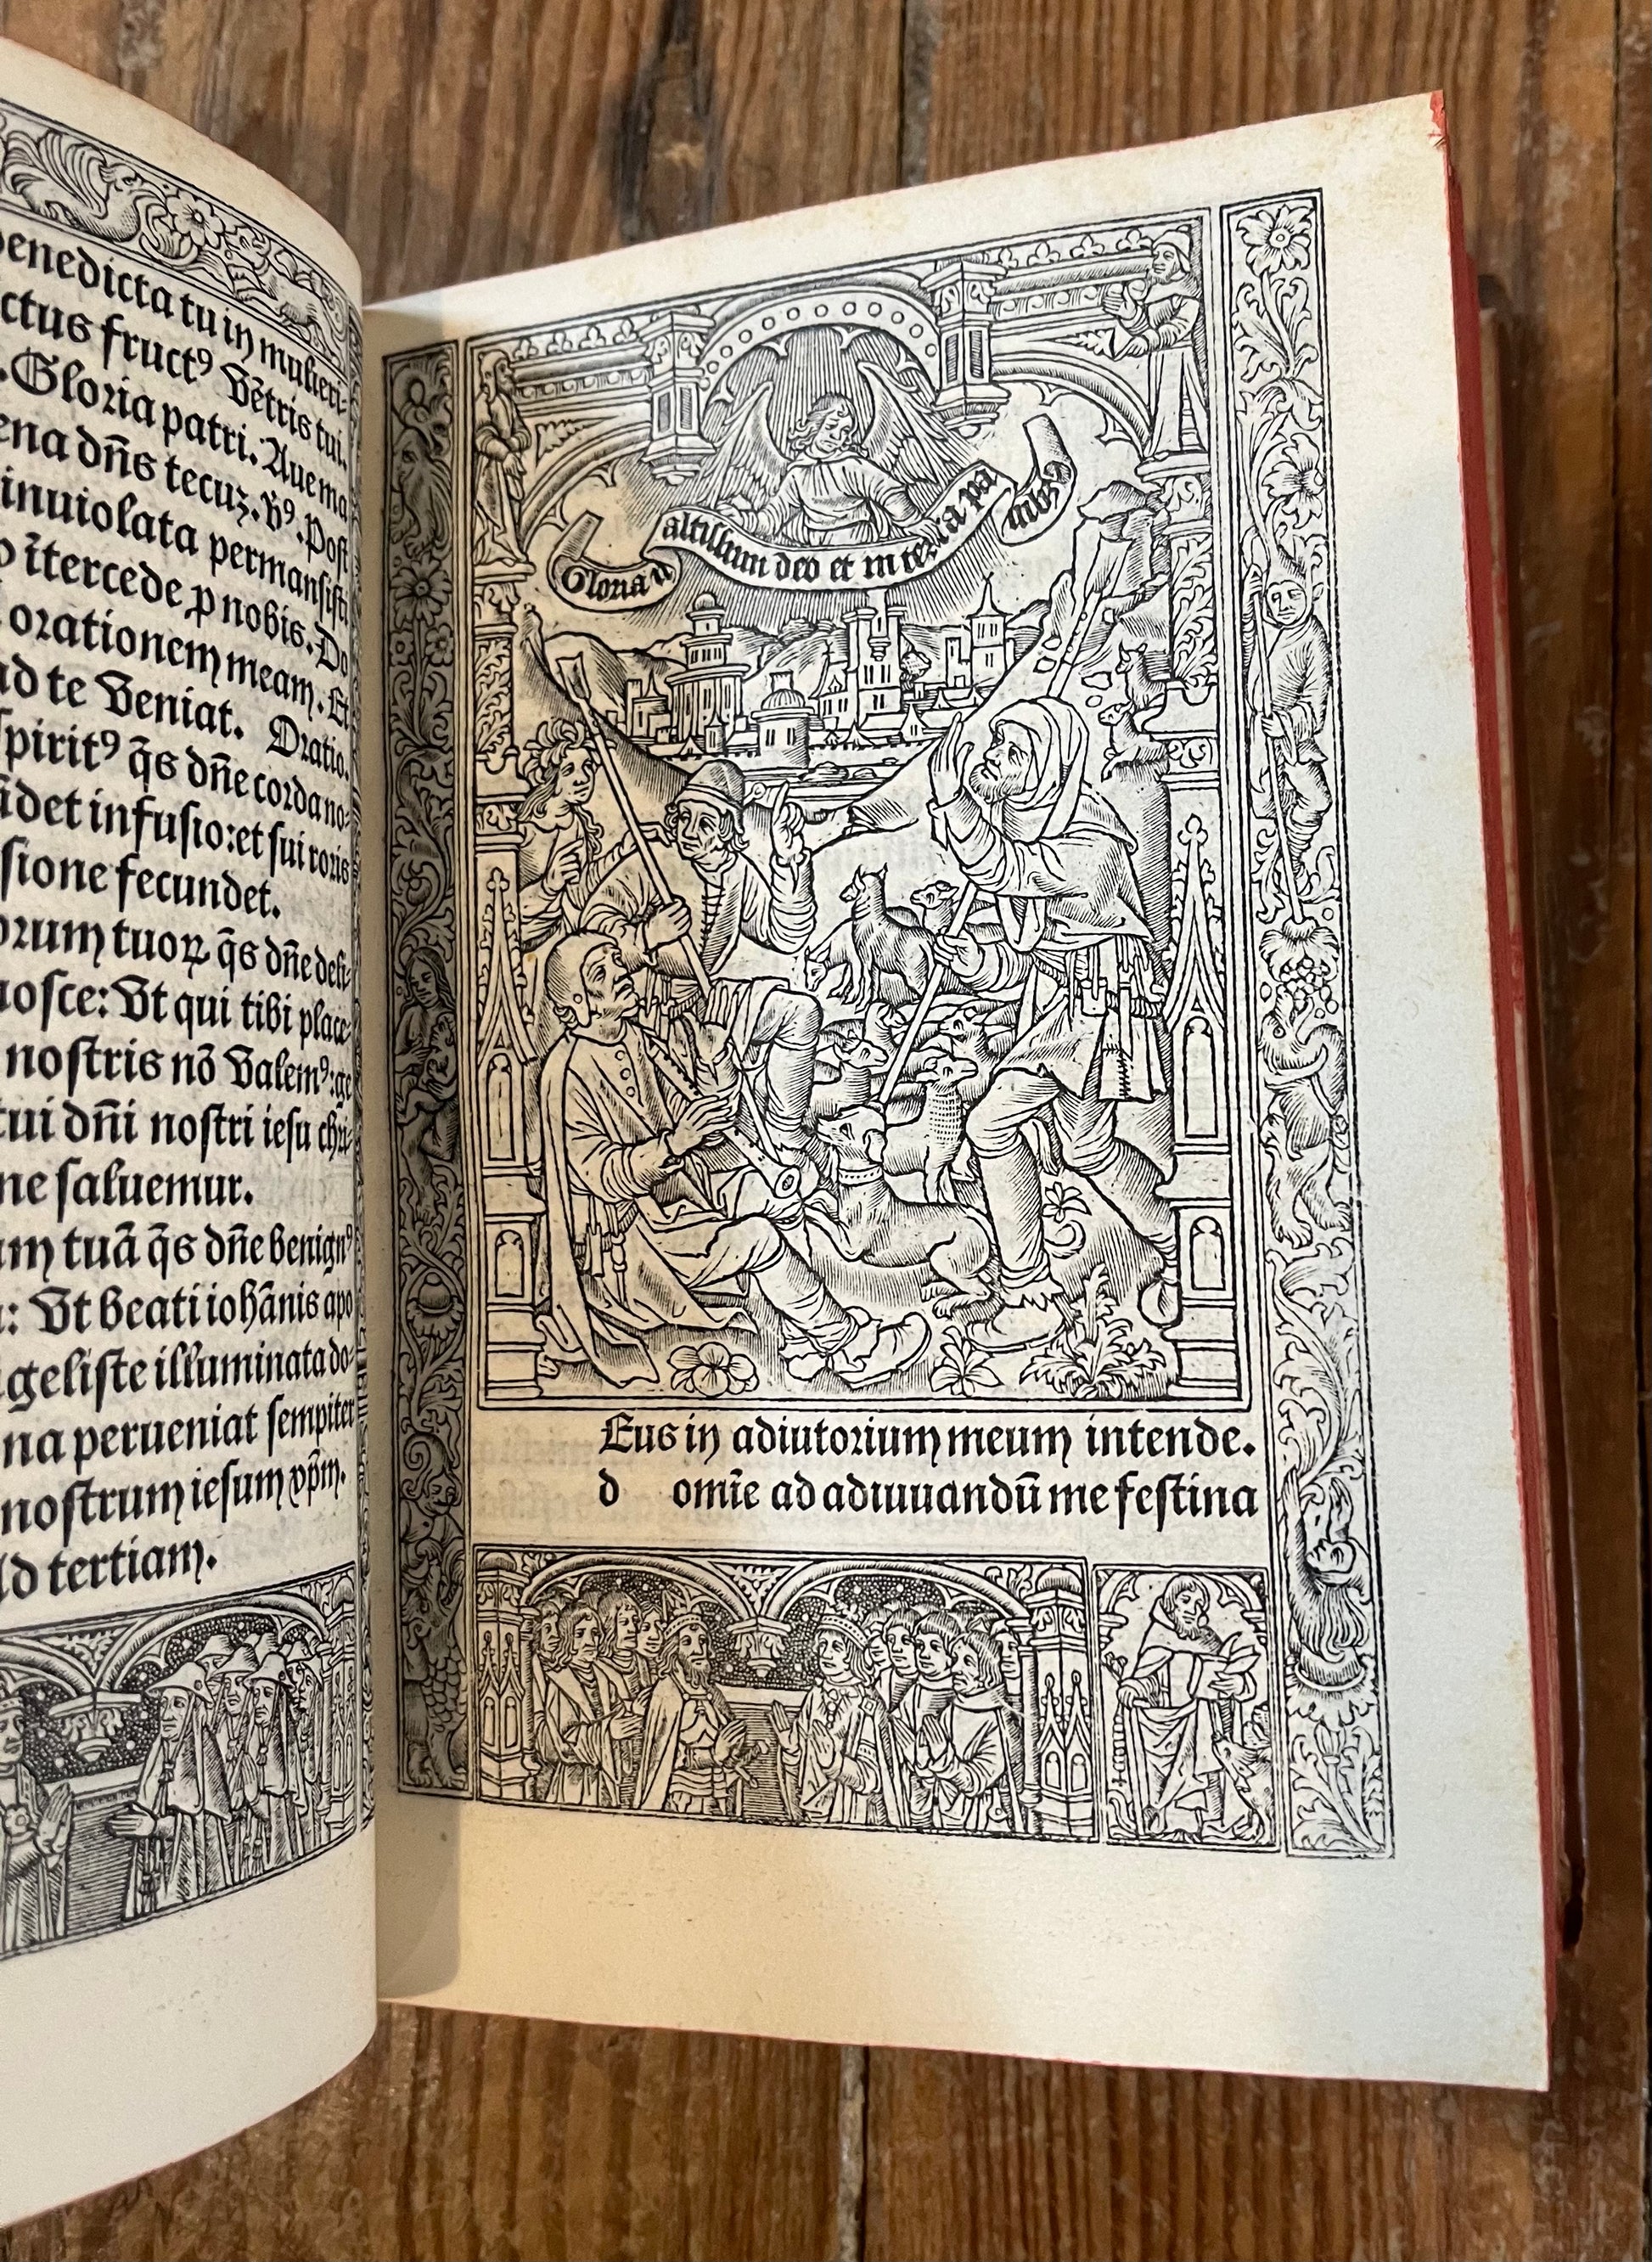 benedicta tu in mulieri-
ctus fructꝰ vētris tui.
. Gloria patri. Aue ma
ena dn̄s tecuz. v̄ꝰ. Post
inuiolata permansisti
o ītercede ꝓ nobis. Do
orationem meam. Et
ad te veniat. Oratio.
spiritꝰ q̄s dn̄e corda no-
ādet infusio: et sui roris
sione fecundet.
orum tuoꝝ q̄s dn̄e deli-
nosce: vt qui tibi place-
nostris nō valemꝰ: ge
tui dn̄i nostri iesu chri-
ne saluemur.
am tuā q̄s dn̄e benignꝰ
: vt beati iohānis apo
geliste illuminata do-
na perueniat sempiter
nostrum iesum xp̄m.
Ad tertiam.
Gloria ī altissimum deo et in terra pa
Eus in adiutorium meum intende.
d omīe ad adiuuandū me festina